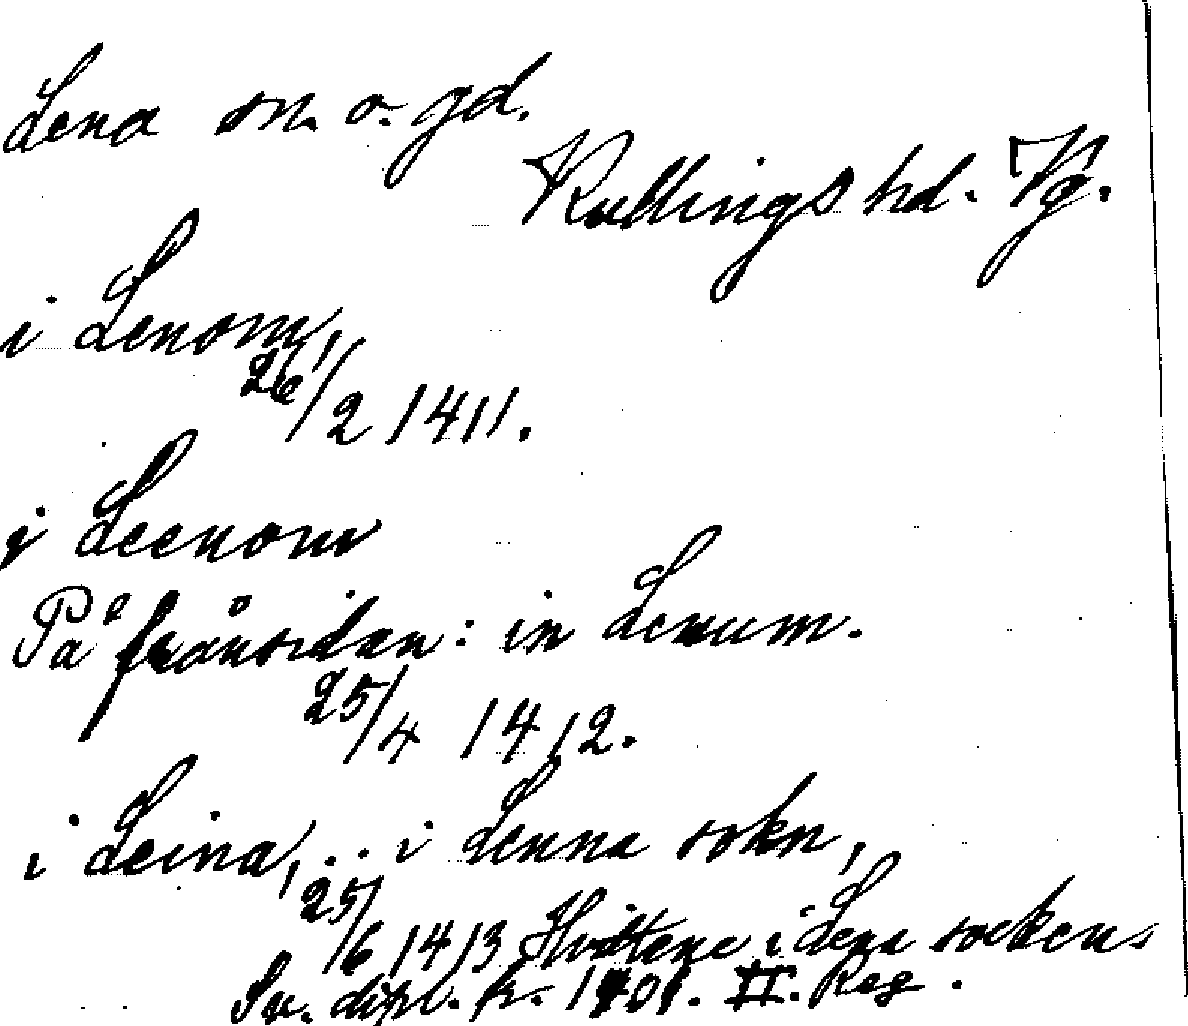 Lena sn. o. gd.
Kullings hd. Vg.
i Lenom,
26/2 1411.
i Leenom
På frånsidan: in Lenum.
25/4 1412.
i Leina, .. i Lenna sokn,
25/6 1413 Hvittene i Lena socken
Sv. dipl. fr. 1401. II. Reg.